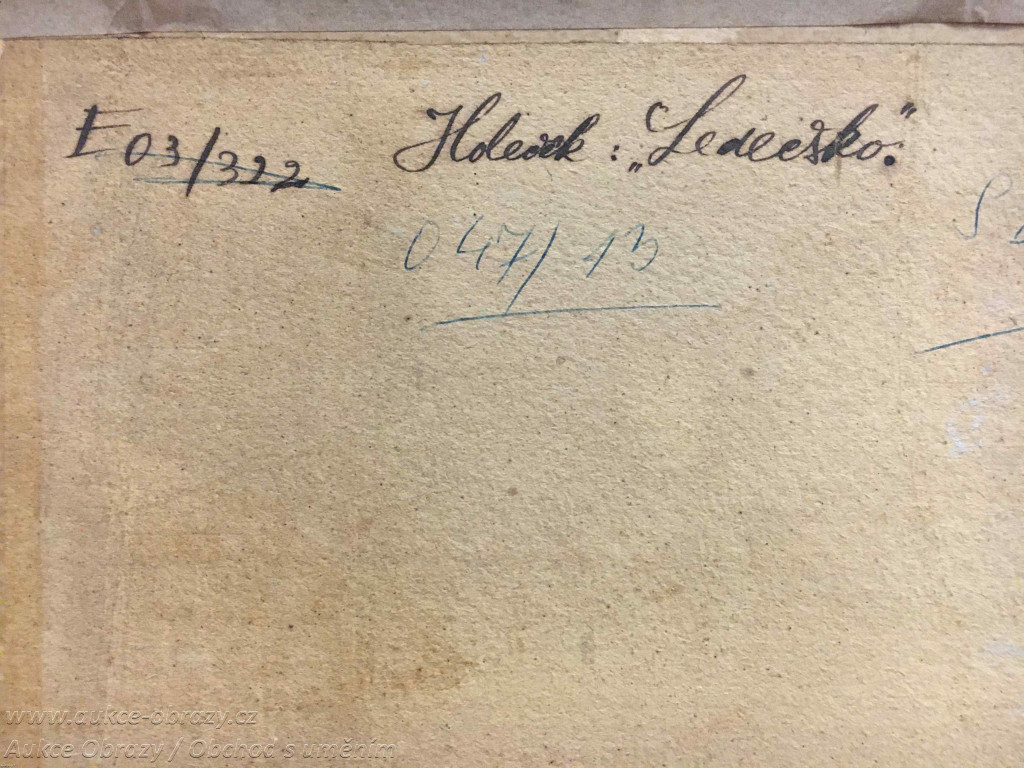 E03/322 : „Ledečsko."
047/13
S
www.aukce-obrazy.cz
Aukce Obrazy / Obchod s uměním